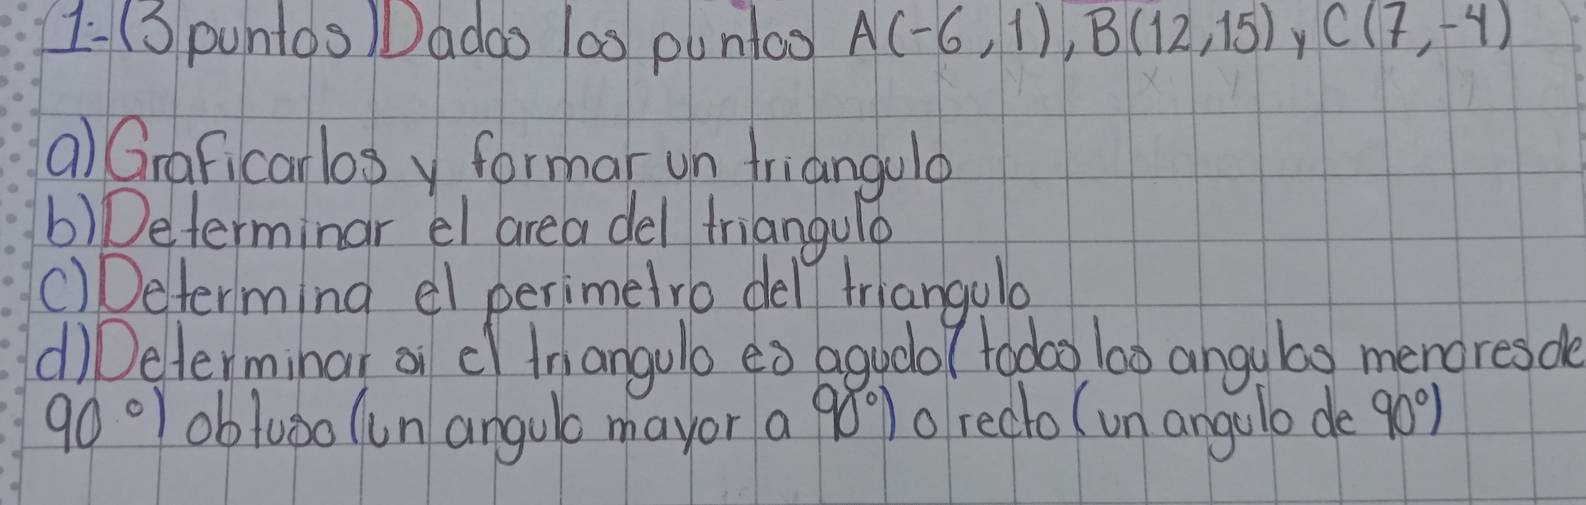 1-(3 puntos) Dados los puntos A(-6,1), B(12,15) y C(7,-4)
a) Graficarlos y formar un triangulo
b) Determinar el area del triangulo
c) Determina el perimetro del triangulo
d) Determinar si el triangulo es agudo (todos los angulos menores de
90°) obtuso (un angulo mayor a 90°) o recto (un angulo de 90°)